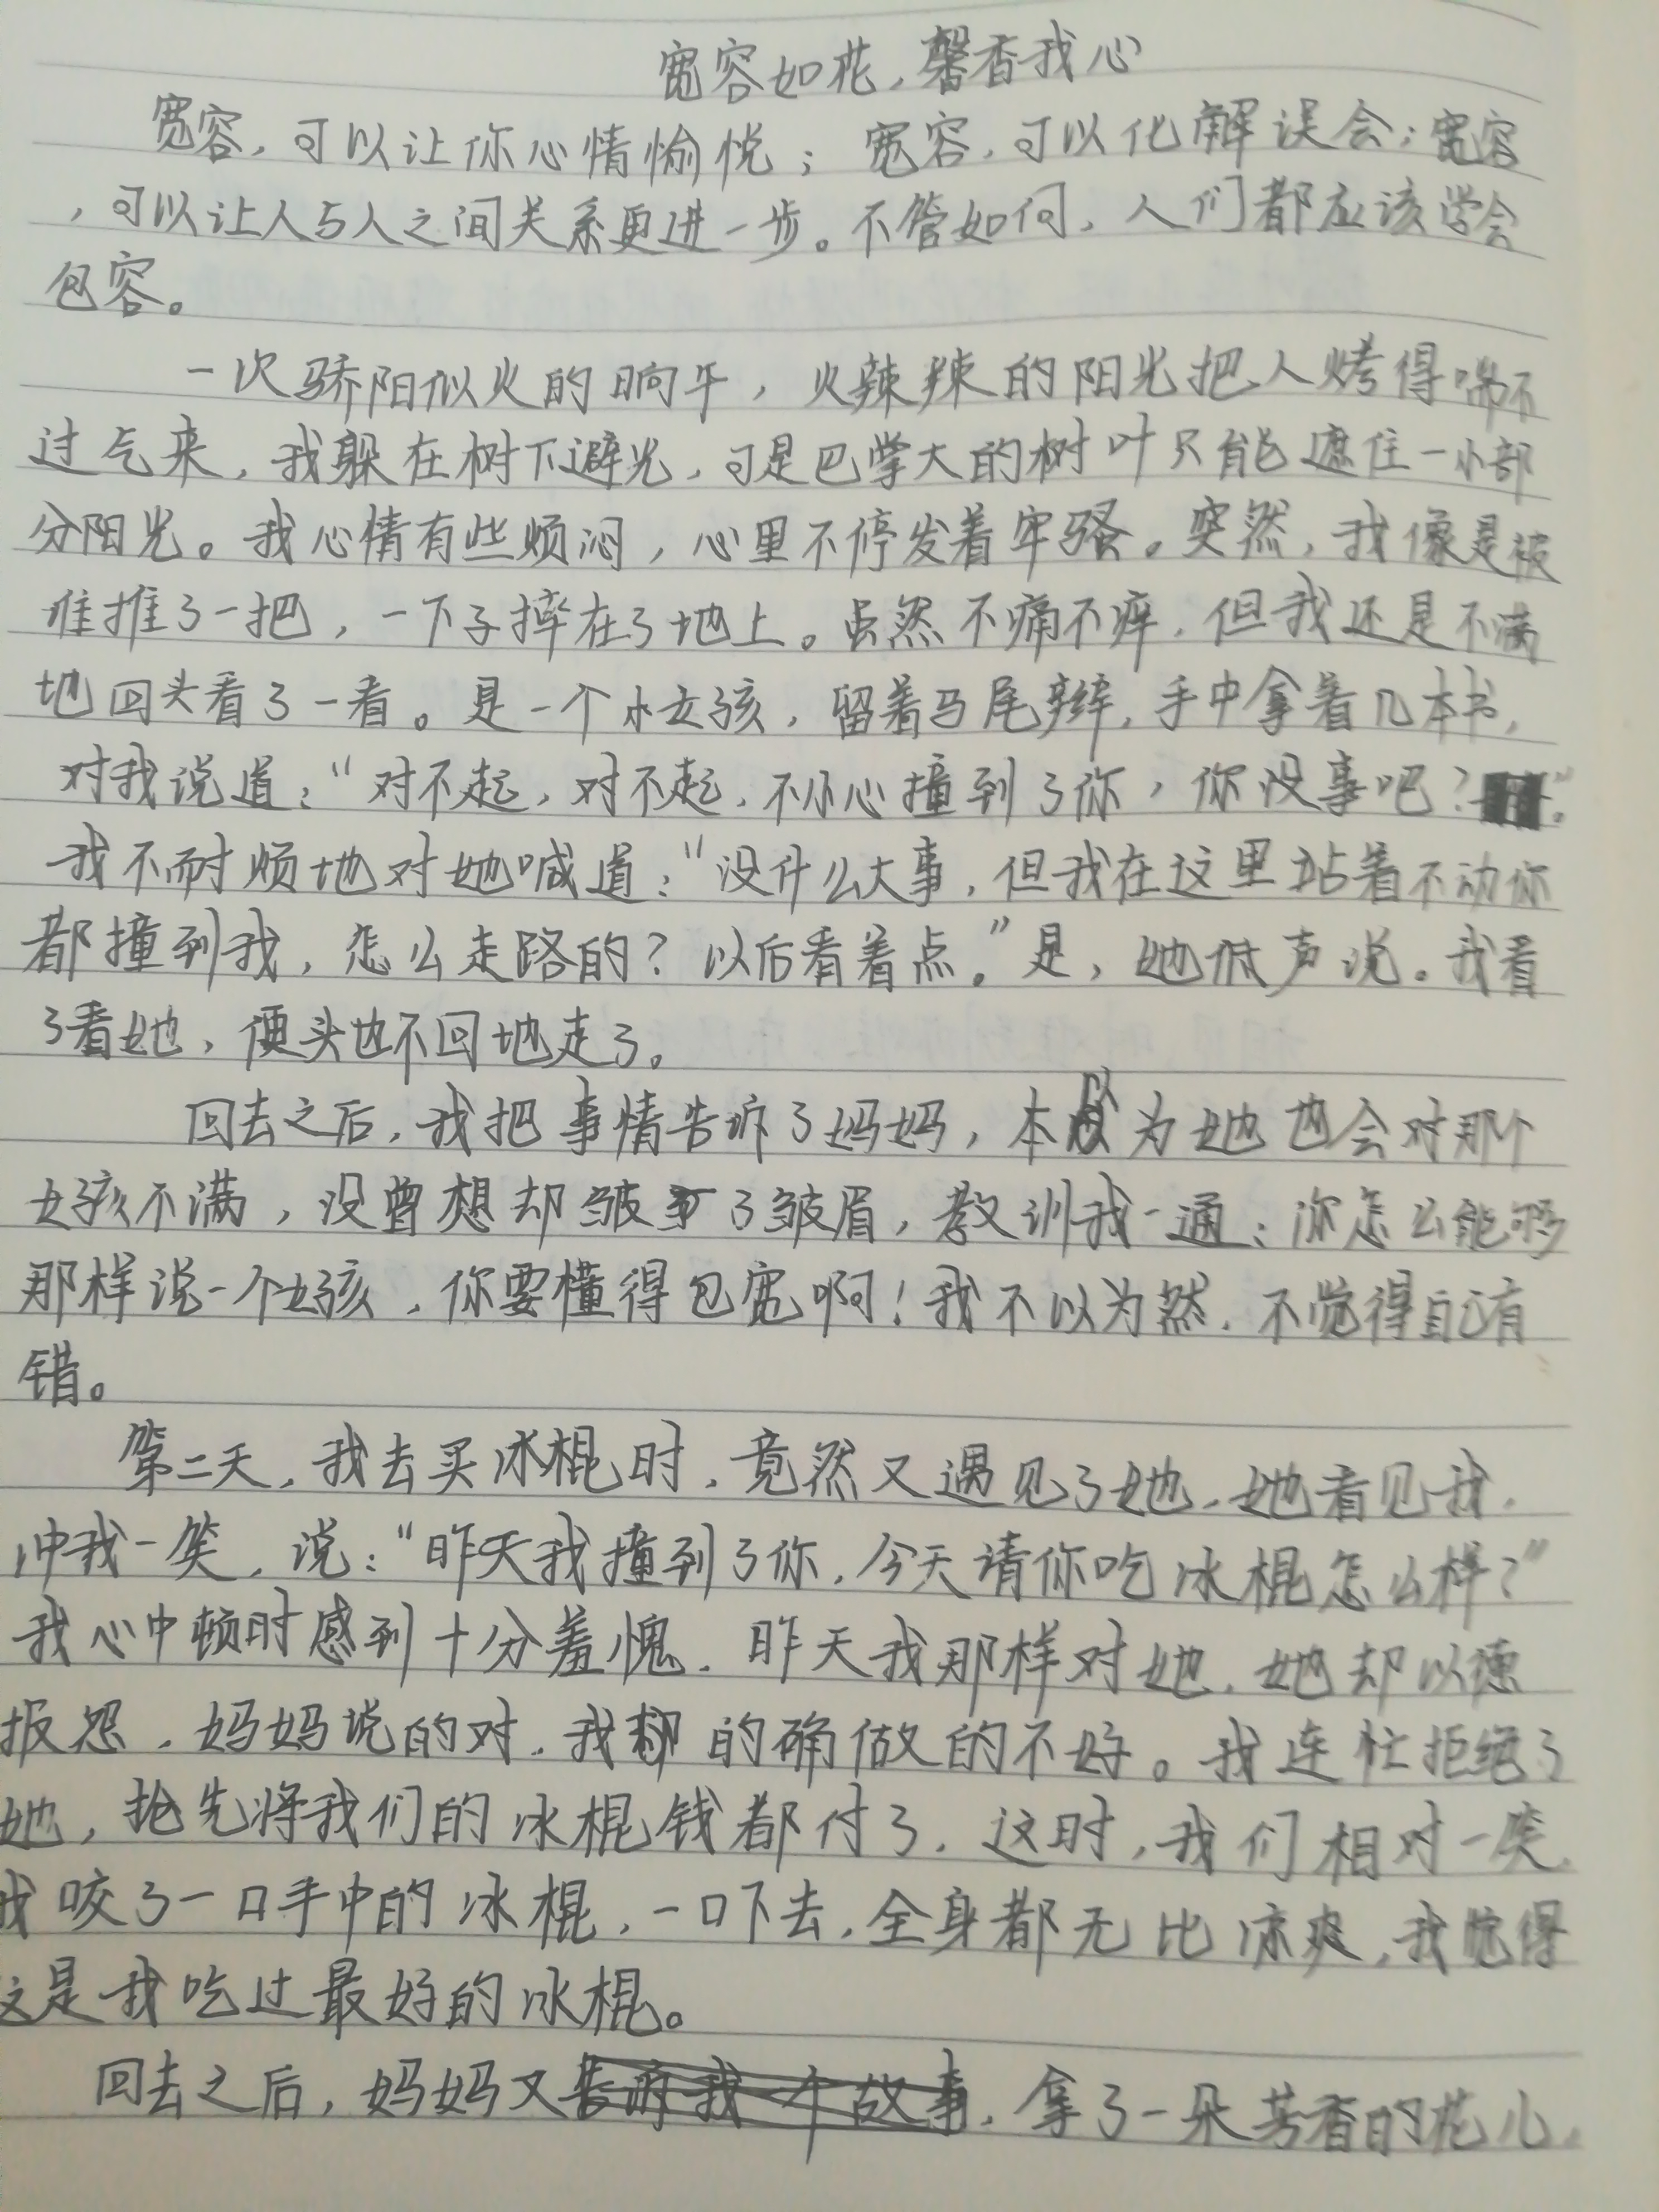 宽容如花，馨香我心
宽容，可以让你心情愉悦；宽容，可以化解误会；宽容
，可以让人与人之间关系更进一步。不管如何，人们都应该学会
包容。
一次骄阳似火的晌午，火辣辣的阳光把人烤得喘不
过气来，我躲在树下避光，可是巴掌大的树叶只能遮住一小部
分阳光。我心情有些烦闷，心里不停发着牢骚。突然，我像是被
谁推了一把，一下子摔在了地上。虽然不痛不痒，但我还是不满
地回头看了一看。是一个小女孩，留着马尾辫，手中拿着几本书，
对我说道：“对不起，对不起，不小心撞到了你，你没事吧？”。
我不耐烦地对她喊道：“没什么大事，但我在这里站着不动你
都撞到我，怎么走路的？以后看着点。”是，她低声说。我看
了看她，便头也不回地走了。
回去之后，我把事情告诉了妈妈，本以为她也会对那个
女孩不满，没曾想却皱了皱眉，教训我一通：你怎么能够
那样说一个女孩，你要懂得包宽啊！我不以为然，不觉得自己有
错。
第二天，我去买冰棍时，竟然又遇见了她，她看见我，
冲我一笑，说：“昨天我撞到了你，今天请你吃冰棍怎么样？”
我心中顿时感到十分羞愧，昨天我那样对她，她却以德
报怨，妈妈说的对，我的确做的不好。我连忙拒绝了
她，抢先将我们的冰棍钱都付了，这时，我们相对一笑，
我咬了一口手中的冰棍，一口下去，全身都无比凉爽，我觉得
这是我吃过最好的冰棍。
回去之后，妈妈又，拿了一朵芳香的花儿，